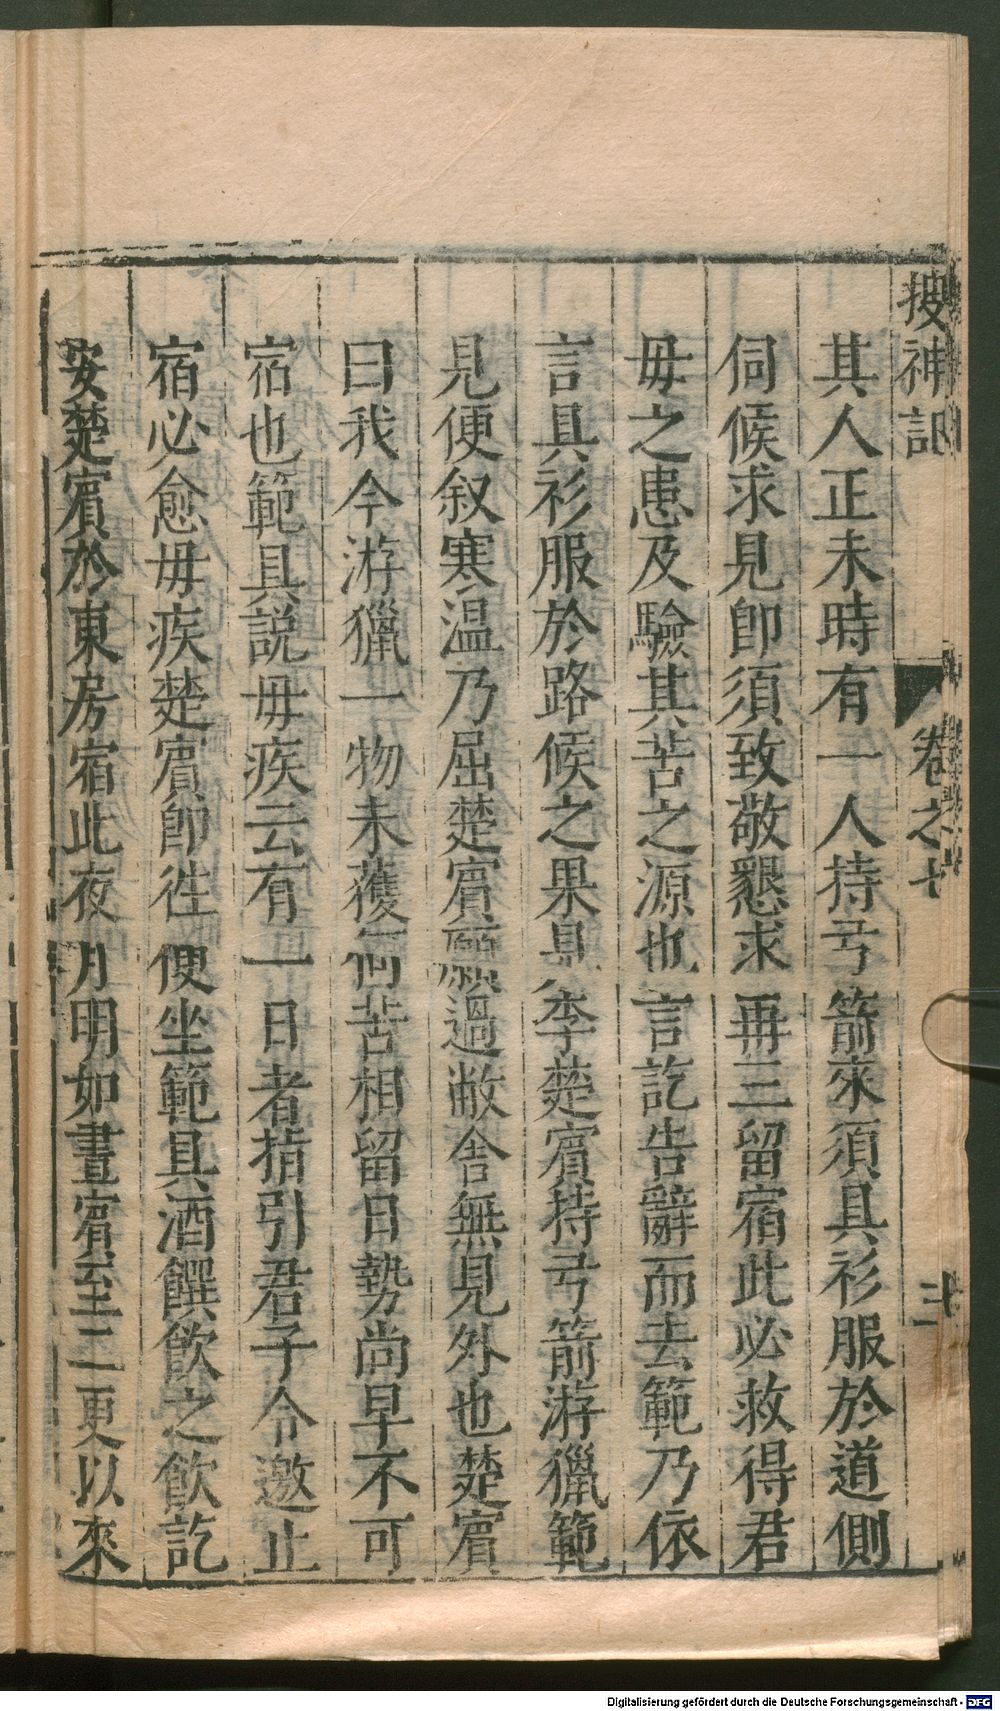 搜神記 卷之七 十二
其人正未時有一人持弓箭來須具衫服於道側
伺候求見卽須致敬懇求再三留宿此必救得君
毋之患及驗其苦之源也言訖告辭而去範乃依
言具衫服於路候之果見李楚賔持弓箭游獵範
見便叙寒温乃屈楚賔願過敝舍無見外也楚賔
曰我今游獵一物未獲何苦相留日勢尚早不可
宿也範具説毋疾云有一日者指引君子令邀止
宿必愈毋疾楚賔卽徃便坐範具酒饌飲之飲訖
安楚賔於東房宿此夜月明如晝賔至二更以來
Digitalisierung gefördert durch die Deutsche Forschungsgemeinschaft - DFG